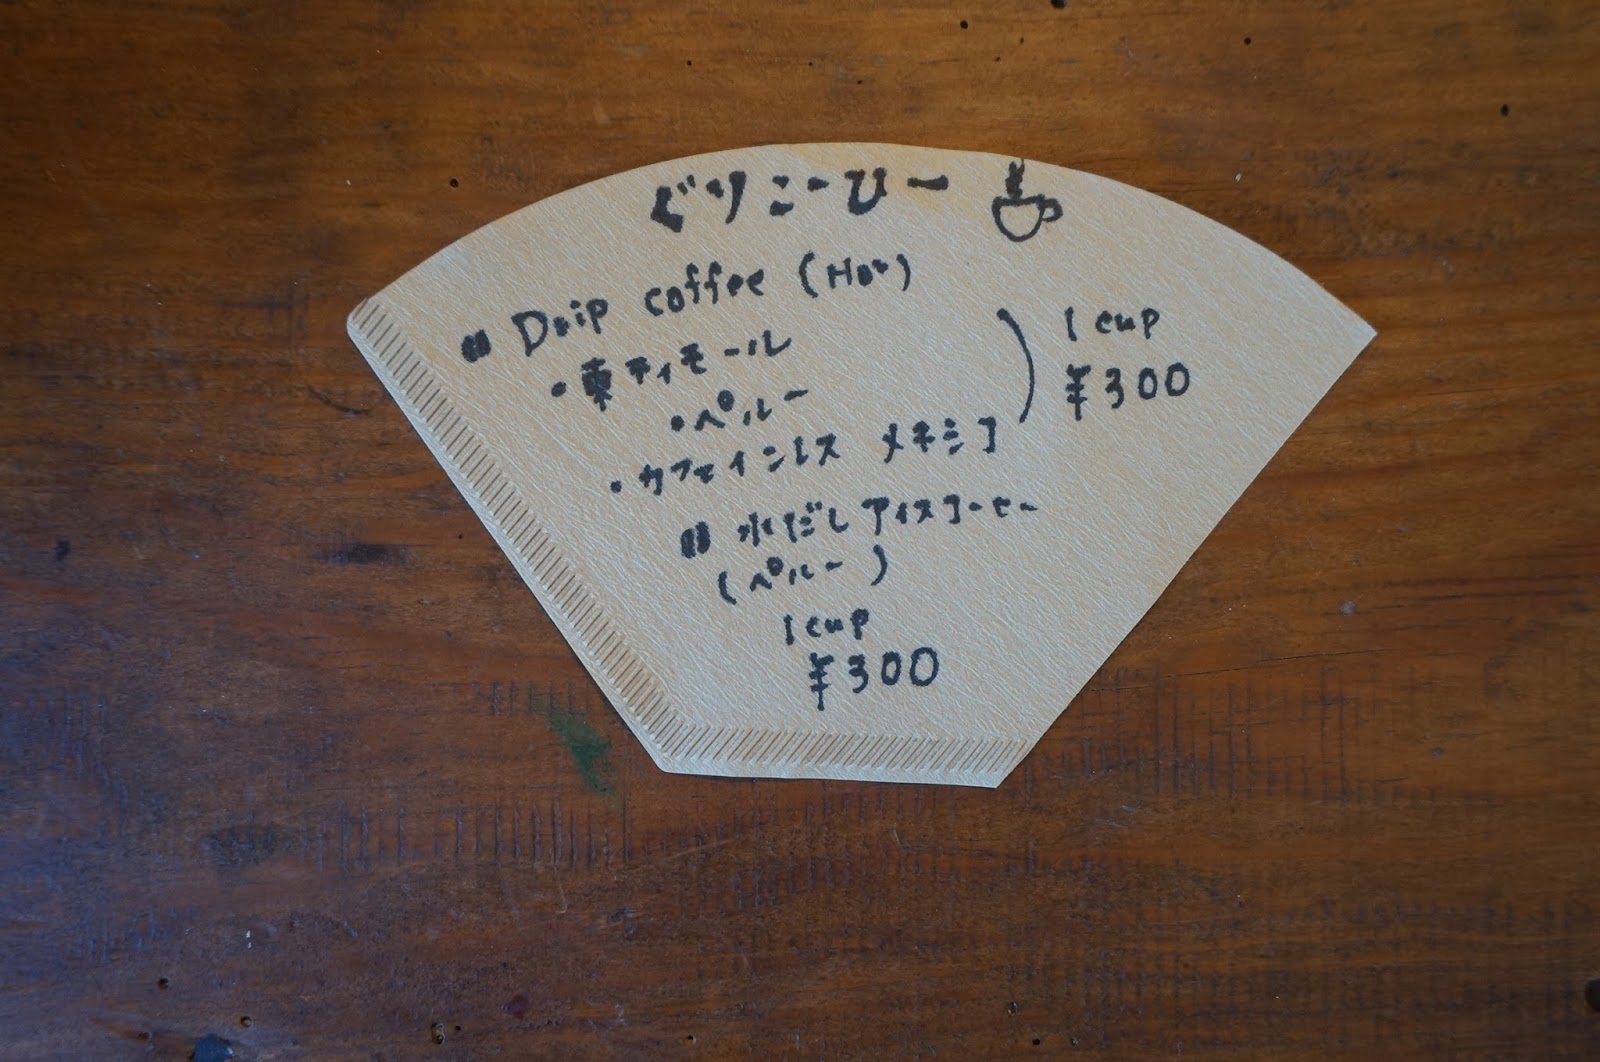 ぐりこーひー
Drip coffee (Hot)
・東ティモール
・ペルー
・カフェインレス メキシコ
1 cup
¥300
水だしアイスコーヒー
(ペルー)
1 cup
¥300